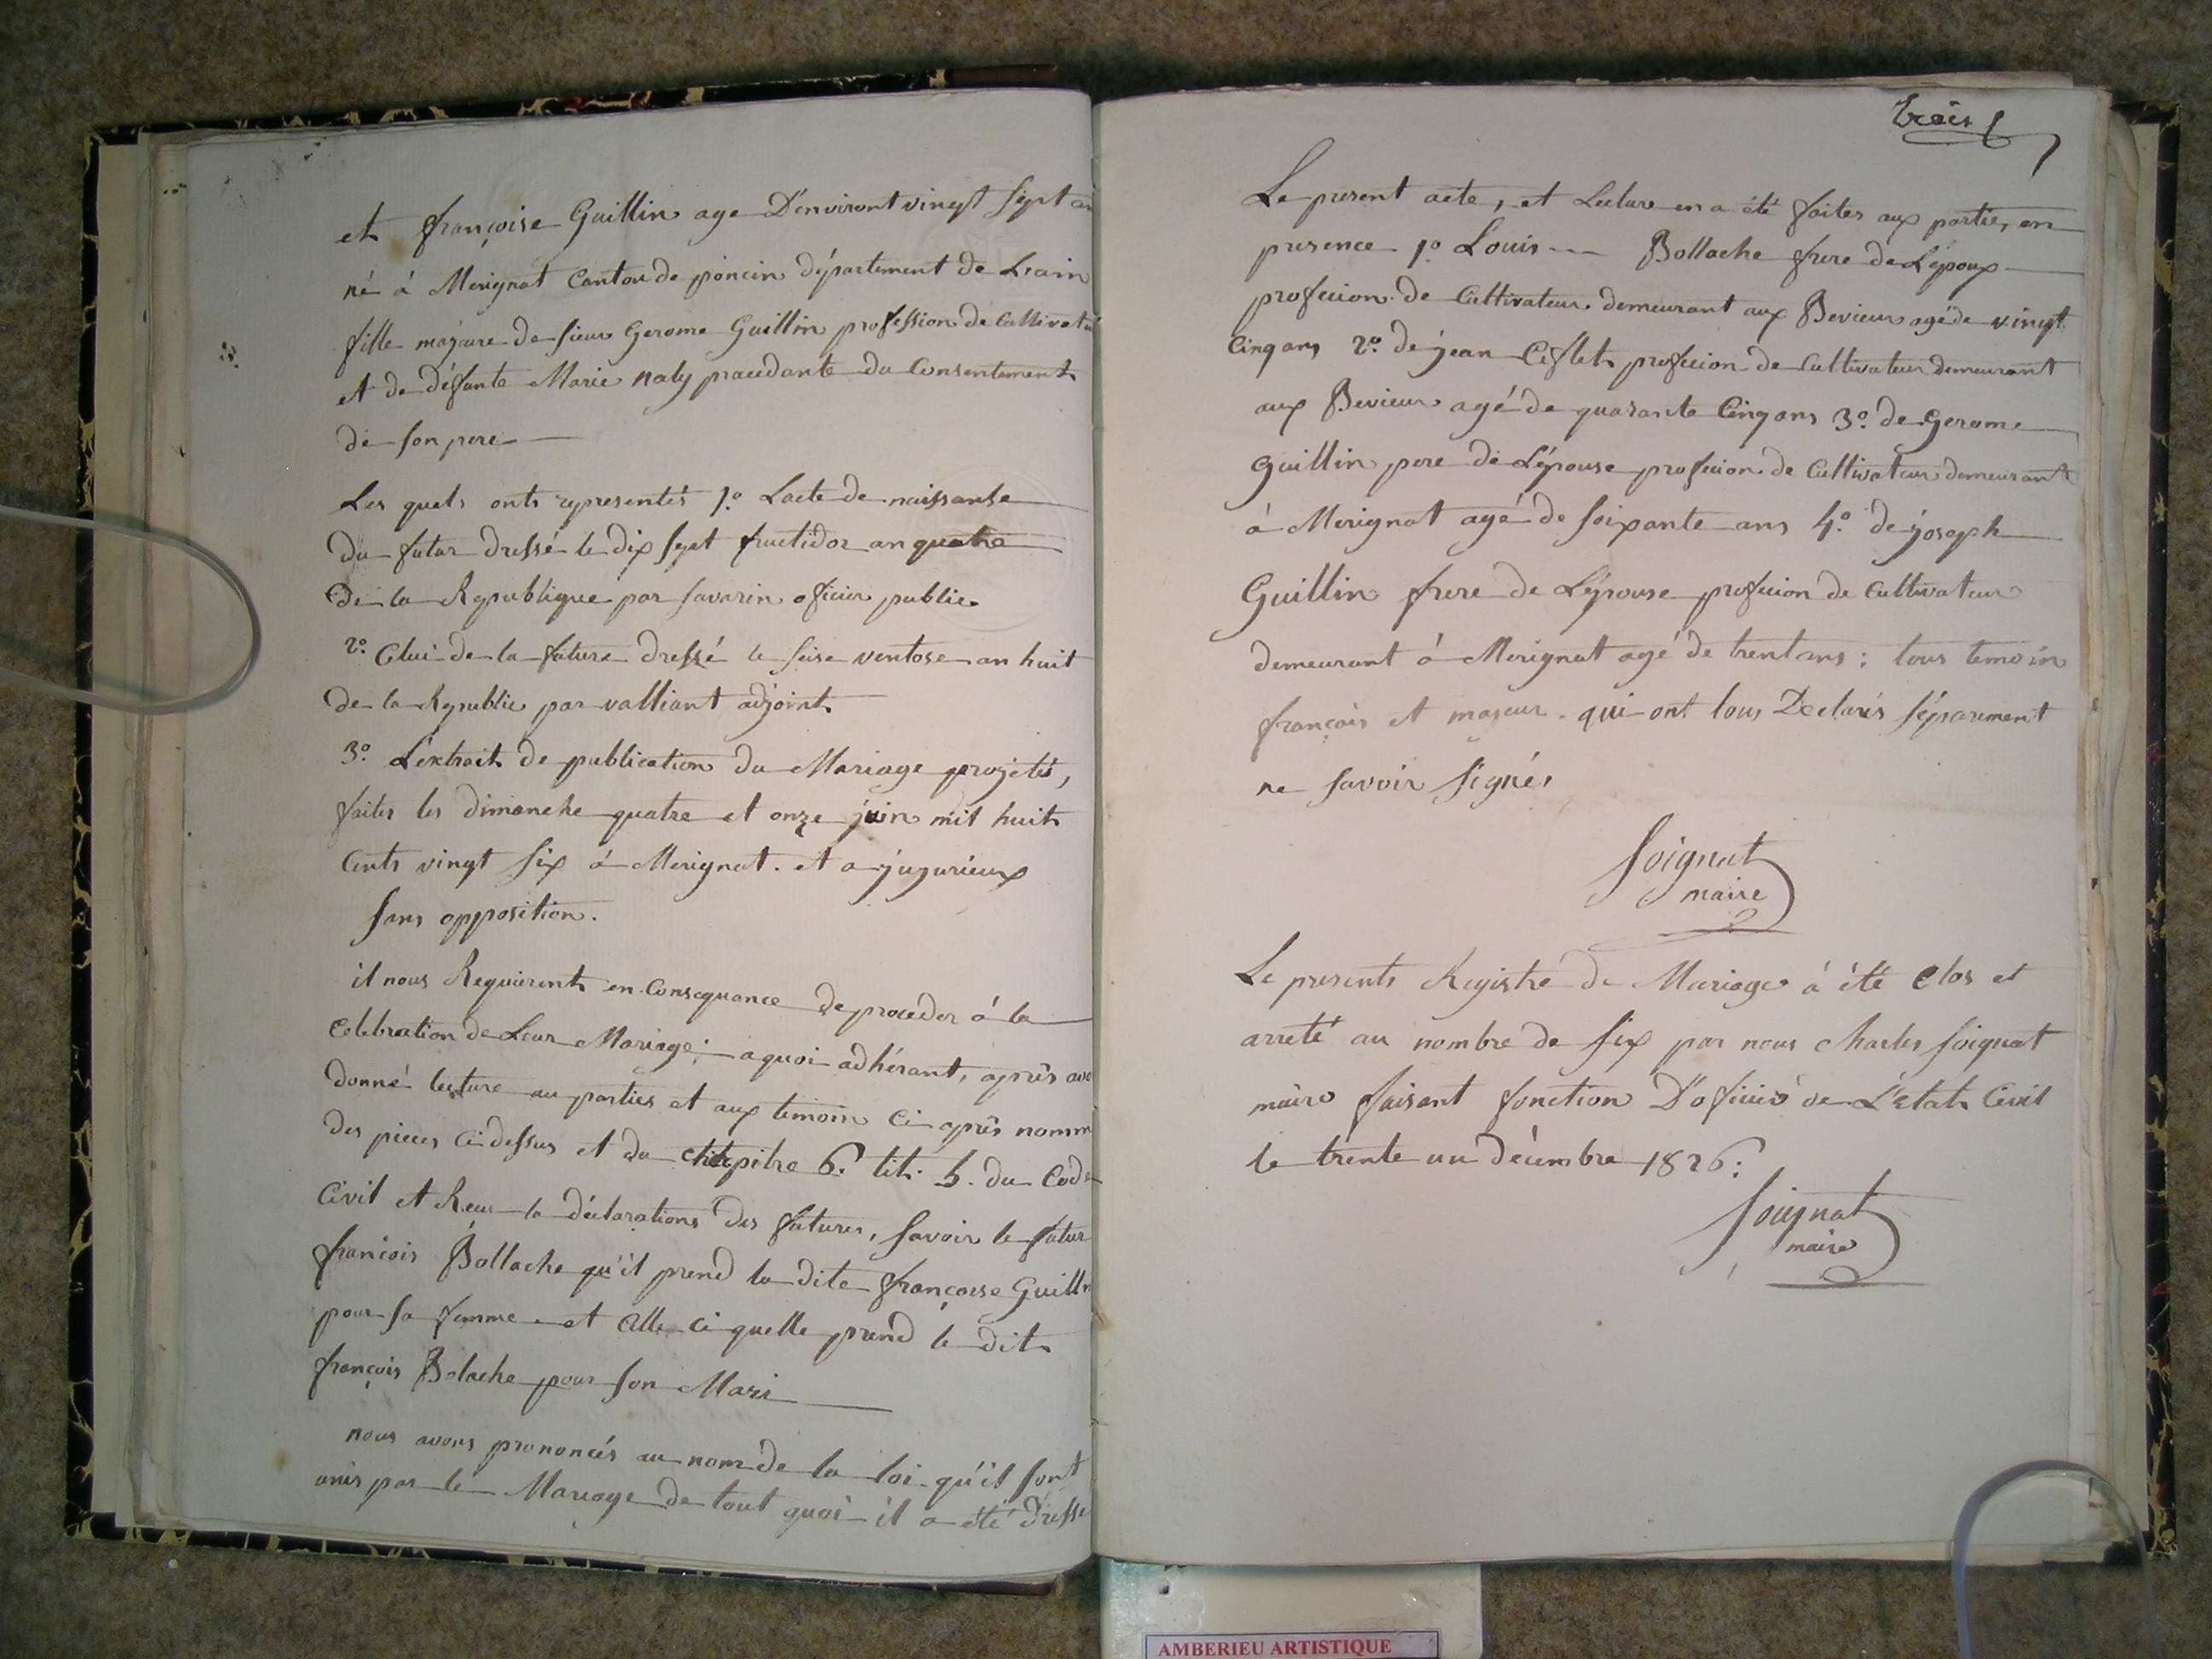 et françoise Guillin age D'environt vingt sept an
né á Merignat Canton de poncin département de Leain
fille majeure de sieur Gerome Guillin profession de Cultivateu
et de défunte Marie naly procedante du Consentement
de son pere
Les quels onts representés 1.º Lacte de naissanse
du futur dressé le dix sept fructidor an quatre
de la Republique par savarin oficier public
2.º Celui de la future dressé le seise ventose an huit
de la Republic par valliant adjoint
3.º L'extrait de publication du Mariage projetés,
faites les dimanche quatre et onze juin mil huit
Cents vingt six á Merignat. et a jujurieux
sans opposition.
il nous Requierent en Consequance de proceder á la
Celebration de Leur Mariage; a quoi adhérant, aprês avo
donné lecture au parties et aux temoin Ci aprês nomm
des pieces Ci dessus et du chapitre 6. tit. 5. du Code
Civil et Reçu la déclarations des futures, savoir le futur
francois Bollache qu'il prend la dite françoise Guillin
pour sa femme et Celle Ci quelle prend le dit
françois Bolache pour son Mari
nous avons prononcés au nom de la loi qu'il sont
unis par le Mariage de tout quoi il a été dressé
trois
Le present acte, et Lecture en a été faites aux partie, en
presence 1.º Louis Bollache frere de L'époux
profecion de Cultivateur demeurant aux Bevieur agé de vingt
Cinq ans 2.º de jean Ceflet profecion de Cultivateur demeurant
aux Bevieur agé de quarante Cinq ans 3.º de Gerome
Guillin pere de L'épouse profecion de Cultivateur demeurant
á Merignat agé de soixante ans 4.º de joseph
Guillin frere de L'épouse profecion de Cultivateur
demeurant á Merignat agé de trent ans; tous temoin
françois et majeur. qui ont tous Declarés séparement
ne savoir signés
Soignat
maire
Le presents Registre de Mariage á été Clos et
arreté au nombre de six par nous Charles soignat
maire faisant fonction D'oficier de L'état Civil
le trente un décembre 1826:
Soignat
maire
AMBERIEU ARTISTIQUE